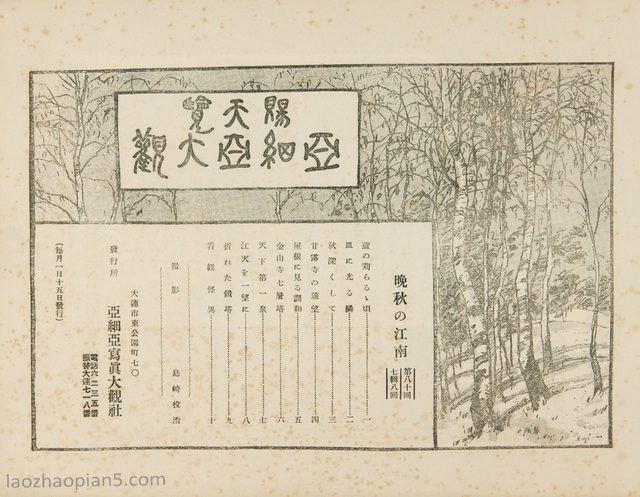 賜天覽
亞細亞大觀
晩秋の江南
第八十回
七輯八回
蘆の刈らるゝ頃 一
皿に光る鱗 二
秋深くして 三
甘露寺の遠望 四
屋根に見る調和 五
金山寺七層塔 六
天下第一泉 七
江天を一望に 八
折れた鐵塔 九
看經怪異 十
撮影 島崎役治
大連市東公園町七〇
發行所 亞細亞寫眞大觀社
電話六二三五番
振替大連七一八番
(毎月一日十五日發行)
laozhaopian5.com